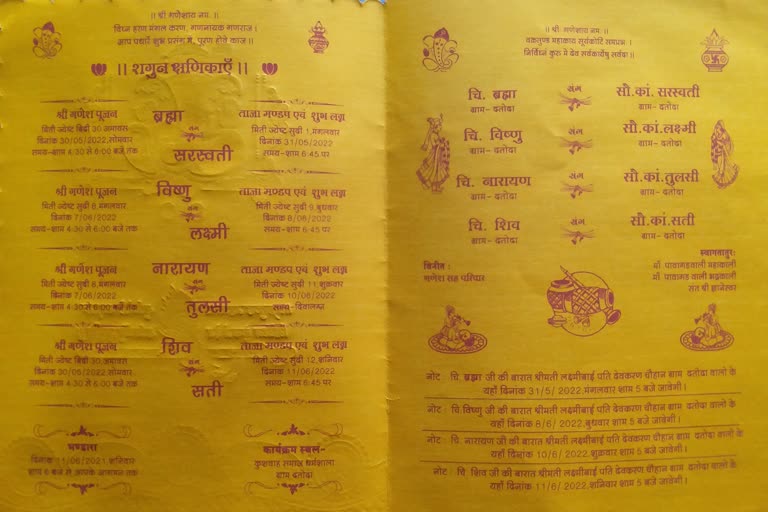 ।। श्री गणेशाय नमः ।।
विघ्न हरण मंगल करण, गणनायक गणराज।
आप पधारों शुभ प्रसंग में, पूरण होवे काज।।
।। शगुन क्षणिकाएँ ।।
श्री गणेश पूजन
मिती ज्येष्ट बिदी 30,अमावस
दिनांक 30/05/2022,सोमवार
समय-शाम 4:30 से 6:00 बजे तक
ब्रह्मा
संग
सरस्वती
ताजा मण्डप एवं शुभ लग्न
मिती ज्येष्ट सुदी 1,मंगलवार
दिनांक 31/05/2022
समय-शाम 6:45 पर
श्री गणेश पूजन
मिती ज्येष्ट सुदी 8,मंगलवार
दिनांक 7/06/2022
समय-शाम 4:30 से 6:00 बजे तक
विष्णु
संग
लक्ष्मी
ताजा मण्डप एवं शुभ लग्न
मिती ज्येष्ट सुदी 9,बुधवार
दिनांक 8/06/2022
समय-शाम 6:45 पर
श्री गणेश पूजन
मिती ज्येष्ट सुदी 8,मंगलवार
दिनांक 7/06/2022
समय-शाम 4:30 से 6:00 बजे तक
नारायण
संग
तुलसी
ताजा मण्डप एवं शुभ लग्न
मिती ज्येष्ट सुदी 11,शुक्रवार
दिनांक 10/06/2022
समय- दिवालग्न
श्री गणेश पूजन
मिती ज्येष्ट बिदी 30,अमावस
दिनांक 30/05/2022,सोमवार
समय-शाम 4:30 से 6:00 बजे तक
शिव
संग
सती
ताजा मण्डप एवं शुभ लग्न
मिती ज्येष्ट सुदी 12,शनिवार
दिनांक 11/06/2022
समय-शाम 6:45 पर
भण्डारा
दिनांक 11/06/2021 शनिवार
शाम 6 बजे से आपके आगमन तक
कार्यक्रम स्थल-
कुशवाह समाज धर्मशाला
ग्राम दतोदा
।। श्री गणेशाय नमः ।।
वक्रतुण्ड महाकाय सूर्यकोटि समप्रभ।
निर्विघ्नं कुरू में देव सर्वकार्येषु सर्वदा।।
चि. ब्रह्मा
ग्राम- दतोदा
संग
सौ.कां. सरस्वती
ग्राम- दतोदा
चि. विष्णु
ग्राम- दतोदा
संग
सौ.कां.लक्ष्मी
ग्राम- दतोदा
चि. नारायण
ग्राम- दतोदा
संग
सौ.कां.तुलसी
ग्राम- दतोदा
चि. शिव
ग्राम- दतोदा
संग
सौ.कां.सती
ग्राम- दतोदा
विनीत :
गणेश सह परिवार
स्वागतातुर:
माँ पावागढवाली महाकाली
माँ पावागढ वाली भद्रकाली
संत श्री ज्ञानेश्वर
नोट : चि. ब्रह्मा जी की बारात श्रीमती लक्ष्मीबाई पति देवकरण चौहान ग्राम दतोदा वालो के
यहाँ दिनांक 31/5/ 2022,मंगलवार शाम 5 बजे जावेगी।
नोट : चि.विष्णु जी की बारात श्रीमती लक्ष्मीबाई पति देवकरण चौहान ग्राम दतोदा वालो के
यहाँ दिनांक 8/6/ 2022,बुधवार शाम 5 बजे जावेगी।
नोट : चि. नारायण जी की बारात श्रीमती लक्ष्मीबाई पति देवकरण चौहान ग्राम दतोदा वालो के
यहाँ दिनांक 10/6/ 2022,शुक्रवार शाम 5 बजे जावेगी।
नोट : चि शिव जी की बारात श्रीमती लक्ष्मीबाई पति देवकरण चौहान ग्राम दतोदा वालो के
यहाँ दिनांक 11/6/ 2022,शनिवार शाम 5 बजे जावेगी।